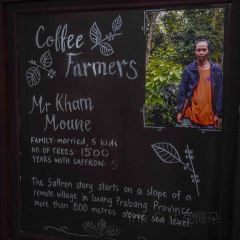 Coffee
Farmers
Mr Kham
Moune
FAMILY: married, 5 kids
NO. OF TREES: 1500
YEARS WITH SAFFRON: 5
The Saffron story starts on a slope of a
remote village in Luang Prabang Province
more than 800 metres above sea level.